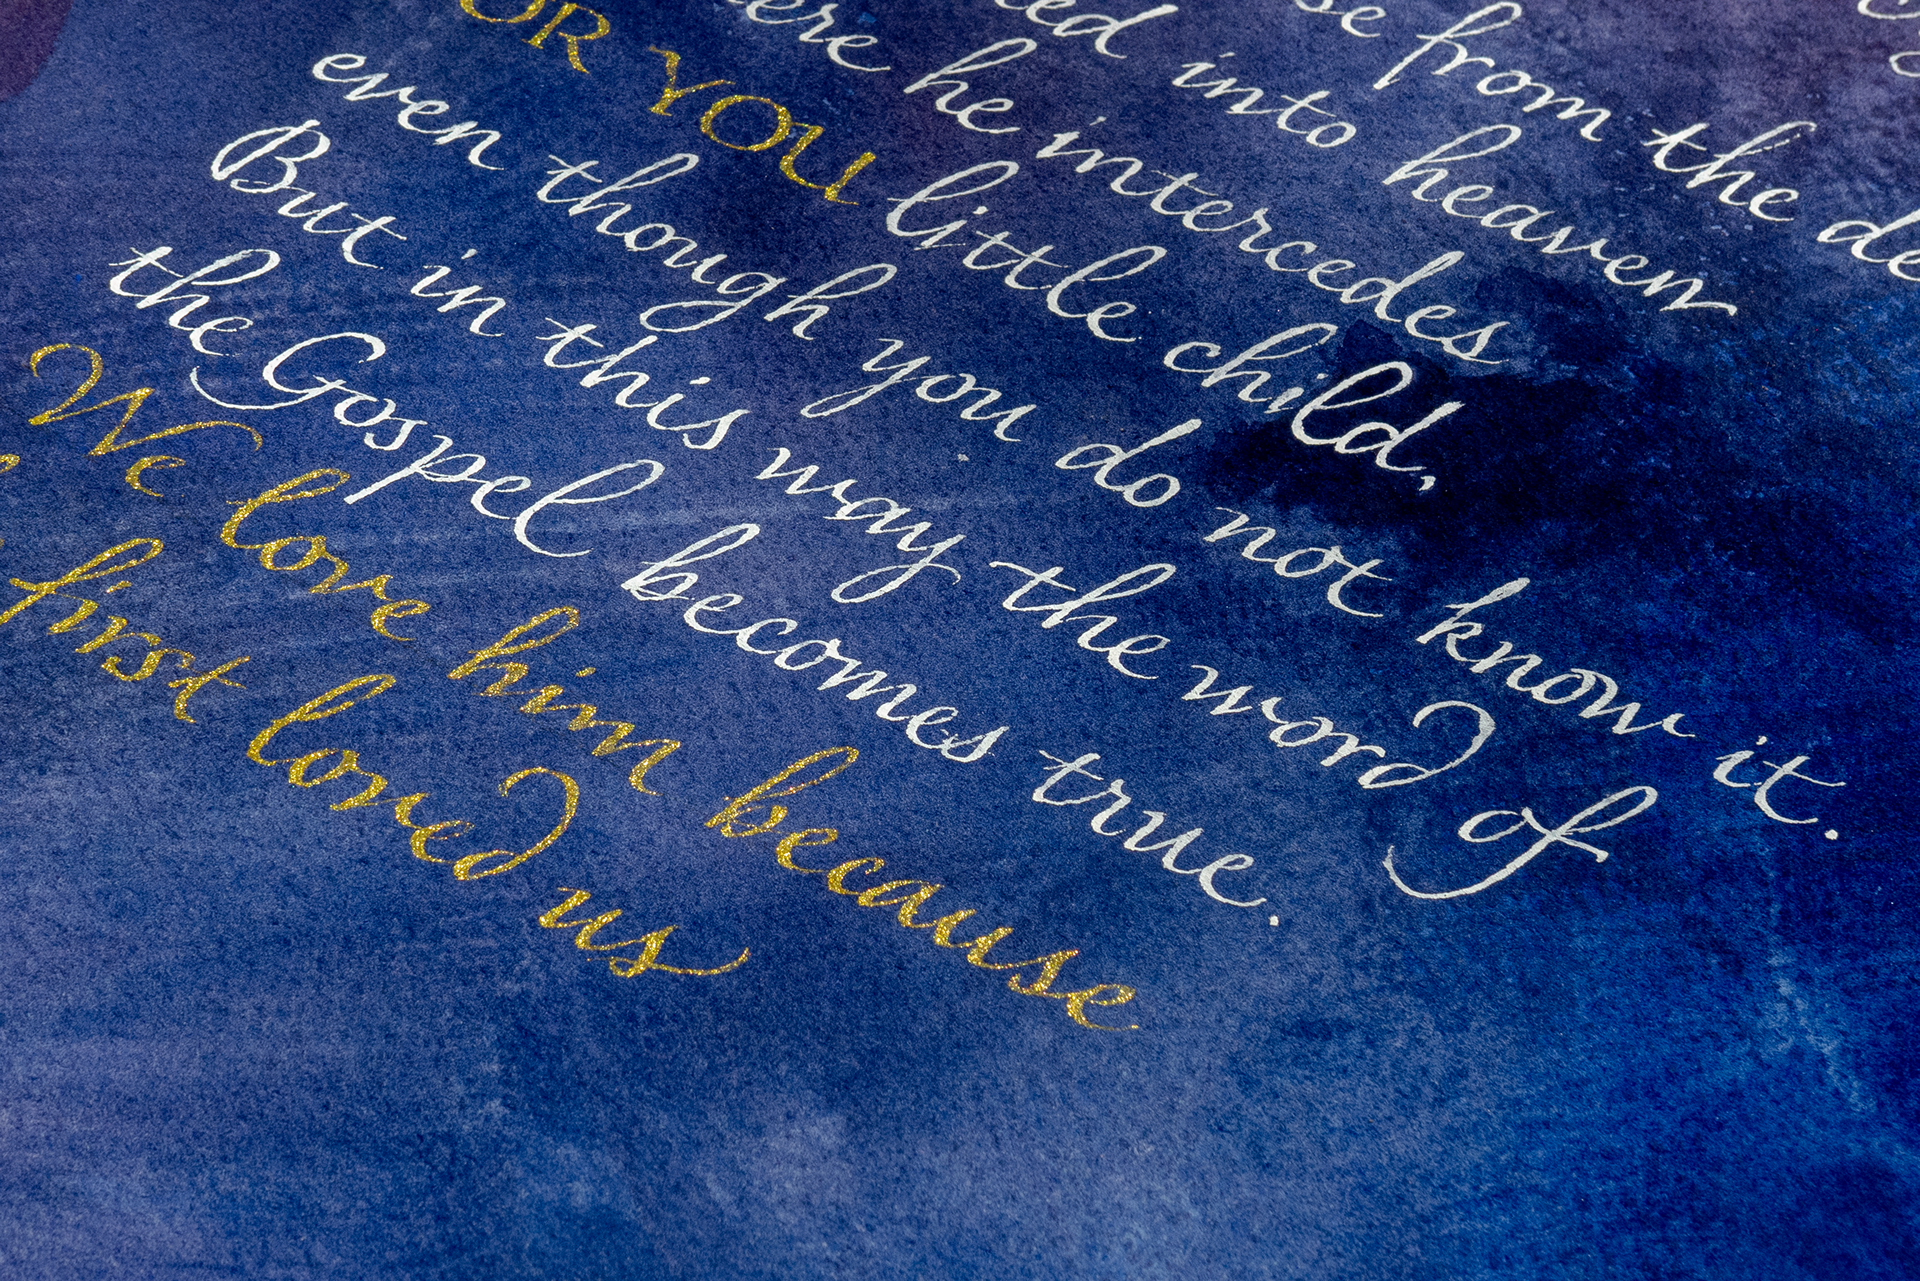 se from the de
ed into heaven
ere he intercedes
OR YOU little child,
even though you do not know it.
But in this way the word of
the Gospel becomes true.
We love him because
first loved us